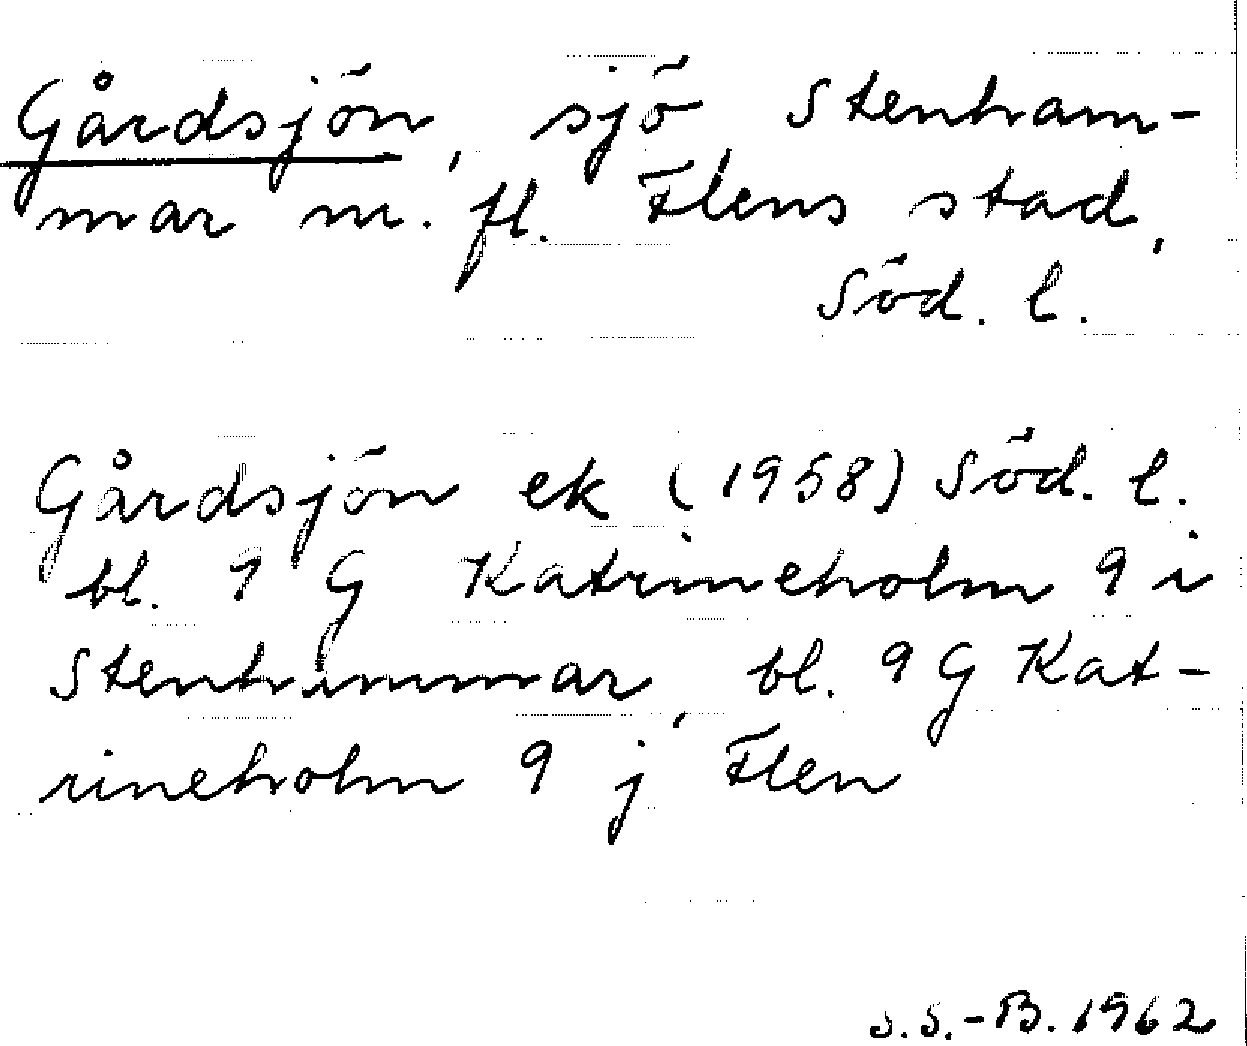 Gårdsjön, sjö Stenham-
mar m. fl. Flens stad,
Söd. l.
Gårdsjön ek (1958) Söd. l.
bl. 9 G Katrineholm 9 i
Stenhammar, bl. 9 G Kat-
rineholm 9 j Flen
S.S.-B. 1962